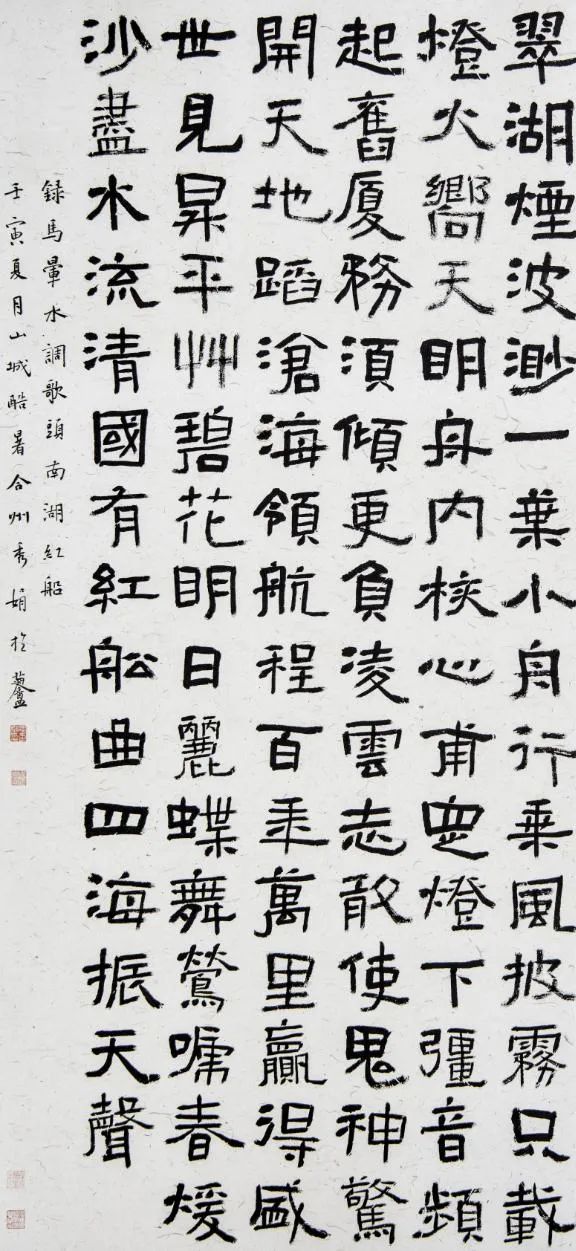 翠湖煙波渺一葉小舟行乘風披霧只載
燈火嚮天明舟内核心甫定燈下彊音頻
起舊厦務須傾更負凌雲志敢使鬼神驚
開天地蹈滄海領航程百年萬里贏得盛
世見昇平艸碧花明日麗蝶舞鶯啼春煖
沙盡水流清國有紅船曲四海振天聲
録馬暈水調歌頭南湖紅船
壬寅夏月山城酷暑合州秀娟於